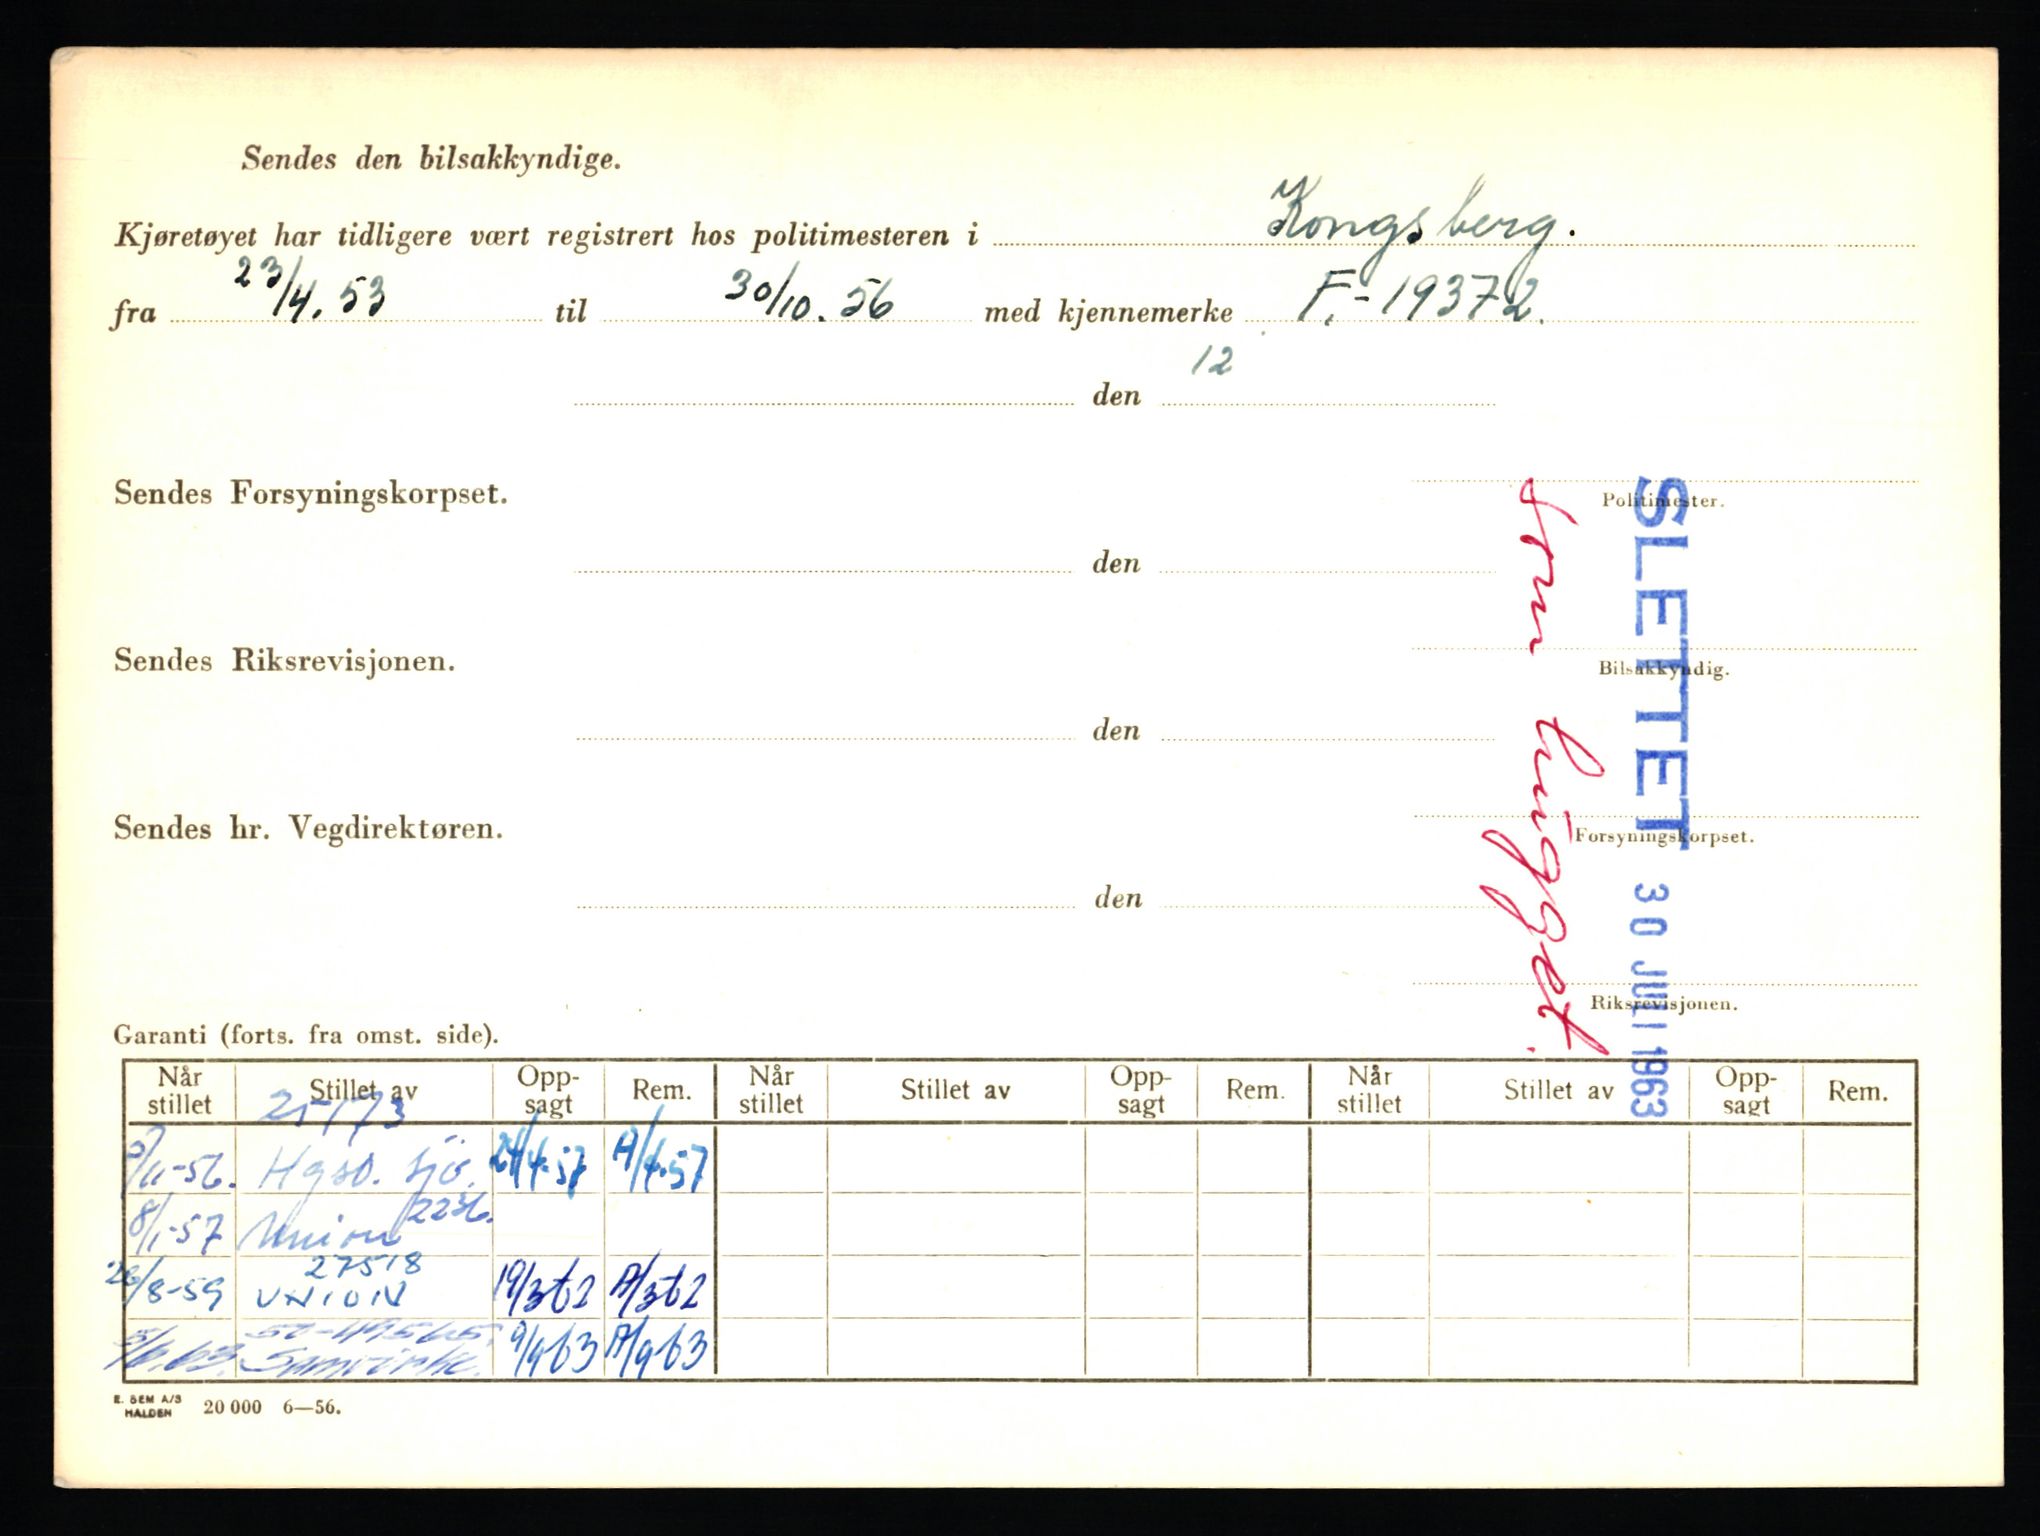 Sendes den bilsakkyndige.
Kjøretøyet har tidligere vært registrert hos politimesteren i Kongsberg.
fra 23/4.53 til 30/10.56 med kjennemerke F.-19372.
12
den
Politimester.
Sendes Forsyningskorpset.
den
Bilsakkyndig.
Sendes Riksrevisjonen.
den
Forsyningskorpset.
Sendes hr. Vegdirektøren.
den
Riksrevisjonen.
SLETTET 30 JULI 1963
som hugget.
Garanti (forts. fra omst. side).
Når stillet Stillet av Opp-sagt Rem. Når stillet Stillet av Opp-sagt Rem. Når stillet Stillet av Opp-sagt Rem.
25173
/11-56. Hgsd. Sjø. 24/4-57 /4-57
8/1-57 Union 2236.
27518
28/8-59 UNION 19/3 62 /3 62
/6.63. Samvirke. 9/9 63 /9 63
E. SEM A/S
HALDEN 20 000 6—56.